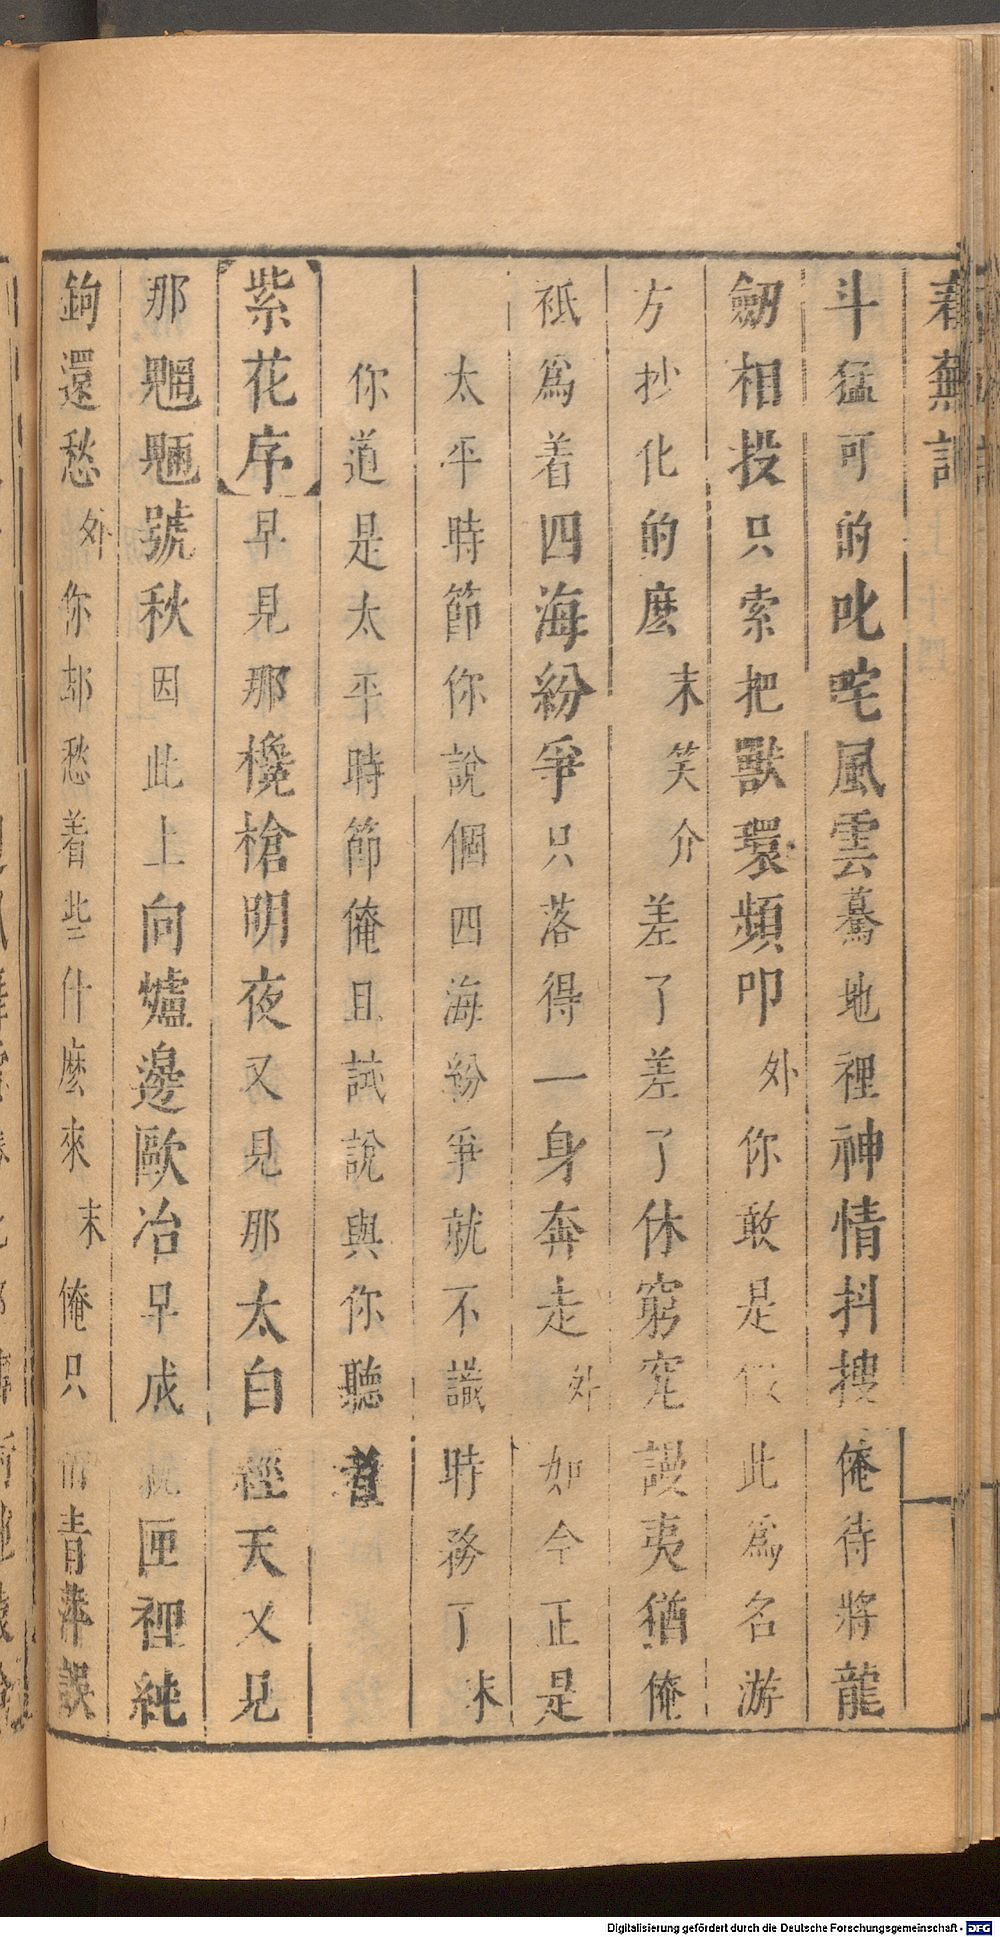 春蕪記
斗猛可的叱咤風雲驀地裡神情抖搜俺待將龍
劒相投只索把獸環頻叩外你敢是假此爲名游
方抄化的麽末笑介差了差了休窮究謾夷猶俺
祗爲着四海紛爭只落得一身奔走外如今正是
太平時節你說個四海紛爭就不識時務了末
你道是太平時節俺且試說與你聽者
【紫花序】早見那欃槍明夜又見那太白經天又見
那魍魎號秋因此上向爐邊歐冶早成匣裡純
鉤還愁外你却愁着些什麽來末俺只青萍誤
Digitalisierung gefördert durch die Deutsche Forschungsgemeinschaft - DFG